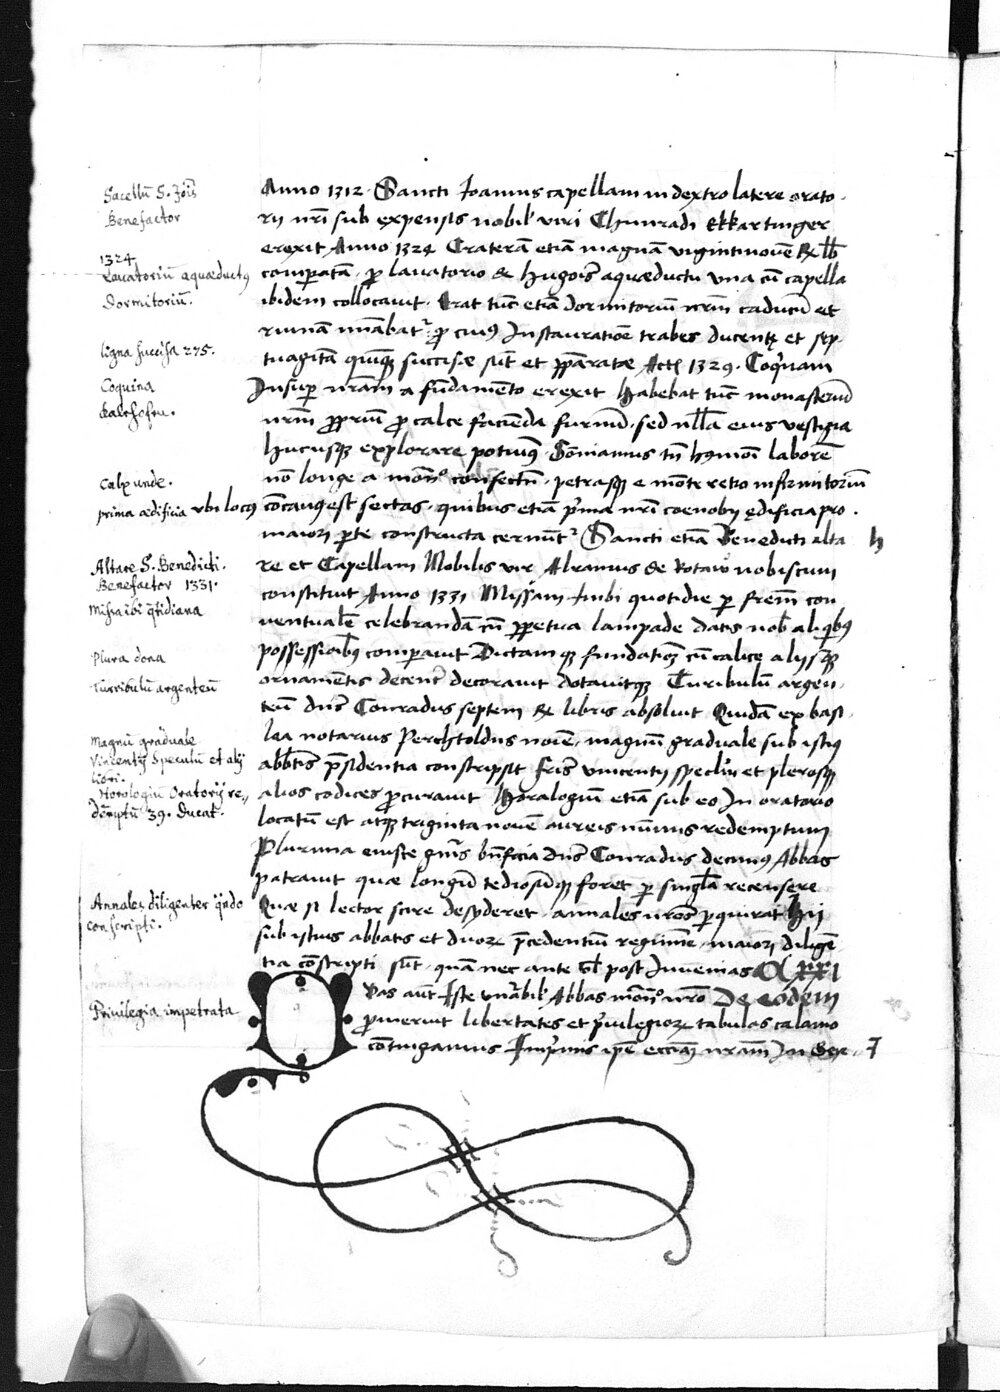 Sacellũ S. Joĩs
Benefactor
1324
Lavatoriũ aquæductꝰ
Dormitoriũ.
ligna succisa 275.
Coquina
kalchofen.
Calx unde.
prima ædificia ubi locꝰ
Altare S. Benedicti.
Benefactor 1331.
Missa ibi q̃tidiana
Plura dona
Turribulũ argenteũ
Magnũ graduale
Vincentij Speculũ et alij
libri.
Horologiũ Oratorij re„
dẽmptũ 39. Ducat.
Annales diligenter q̃ndo
conscripti.
Privilegia impetrata
Anno 1312. Sancti Ioannis capellam in dextro latere orato
rij nr̃i sub expensis nobil' viri Chunradi Ekkartinger
erexit Anno 1324 Craterã etiã magnã vigintinovẽ & lb̃
comparatã pro lavatorio & Hugoĩs aquæductu una cũ capella
ibidem collocavit. Erat tũc etiã dormitoriũ nr̃m caducũ et
ruinã minabatr pro cuiꝰ Instauratiõe trabes ducentę et sep
tuagĩta quinqꝫ succisæ sũt et p̱paratæ Act 1329. Coq̃nam
Insuper nr̃am a fũdamẽto erexit Habebat tũc monasteriũ
nr̃m p̱priũ pro calce faciẽda furnũ, sed nlľa eius vestigia
hucusqꝫ explorare potuimꝰ Somiamus tñ hꝰmõi laborẽ
nõ longe a mõno confectũ, petrasqꝫ e mõte retro infirmitoriũ
cõcavo est sectas, quibus etiã p̃ma nr̃i coenobij ędificia pro
maiori p̱te constructa cernũtr Sancti etiã Benedicti alta
re et Capellam Nobilis vir Alramus de Rotaw nobiscum
constituit Anno 1331 Missam Inibi quotidie per fr̃em con
ventualẽ celebrandã cũ p̱petua lampade datis nob' aliq̃bꝰ
possessiõibꝰ comparavit Dictamqꝫ fundatiõꝫ cũ calice alijsqꝫ
ornamẽtis decenť decoravit dotavitqꝫ Turibulũ argen
teũ dñs Conradus septem & libris absolvit Quidã ex basi
lea notarius Perchtoldus novẽ, magnũ graduale sub istiꝰ
abb̃tis p̃sidentia conscripsit fr̃is vincentij specl'ũ et plerosqꝫ
alios codices procuravit Horalogiũ etiã sub eo In oratorio
locatũ est atqꝫ triginta novẽ aureis nũmis redemptum
Plurima eiuste gñis bñficia dñs Conradus decimꝰ Abbas
patravit quæ longũ tediosũqꝫ foret per singl'a recensere
Quæ si lector scire desyderet, annales nr̃os perquirat Hij
sub istius abbatis et duorꝫ p̃cedentiũ regimĩe, maiori diligẽ
tia cõscripti sũt, quã nec ante vel post Invenias XXXI
Vas aũt Iste vñrabil' Abbas mõno nr̃o De eodem
promeruit libertates et p̃vilegiorꝫ tabulas calamo
cõtingamus Imprimis ip̃e ecciã nr̃am In Sex